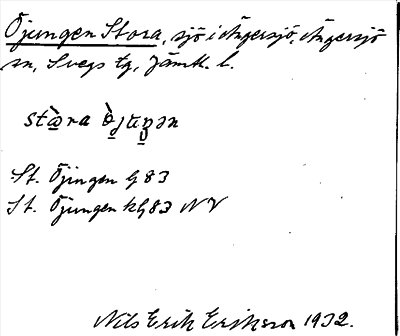 Öjungen Stora, sjö i Ängersjö, Ängersjö
sn, Svegs tg, Jämtl. l.
St. Öjingen G 83
St. Öjungen kG 83 NV
Nils Erik Eriksson 1932.